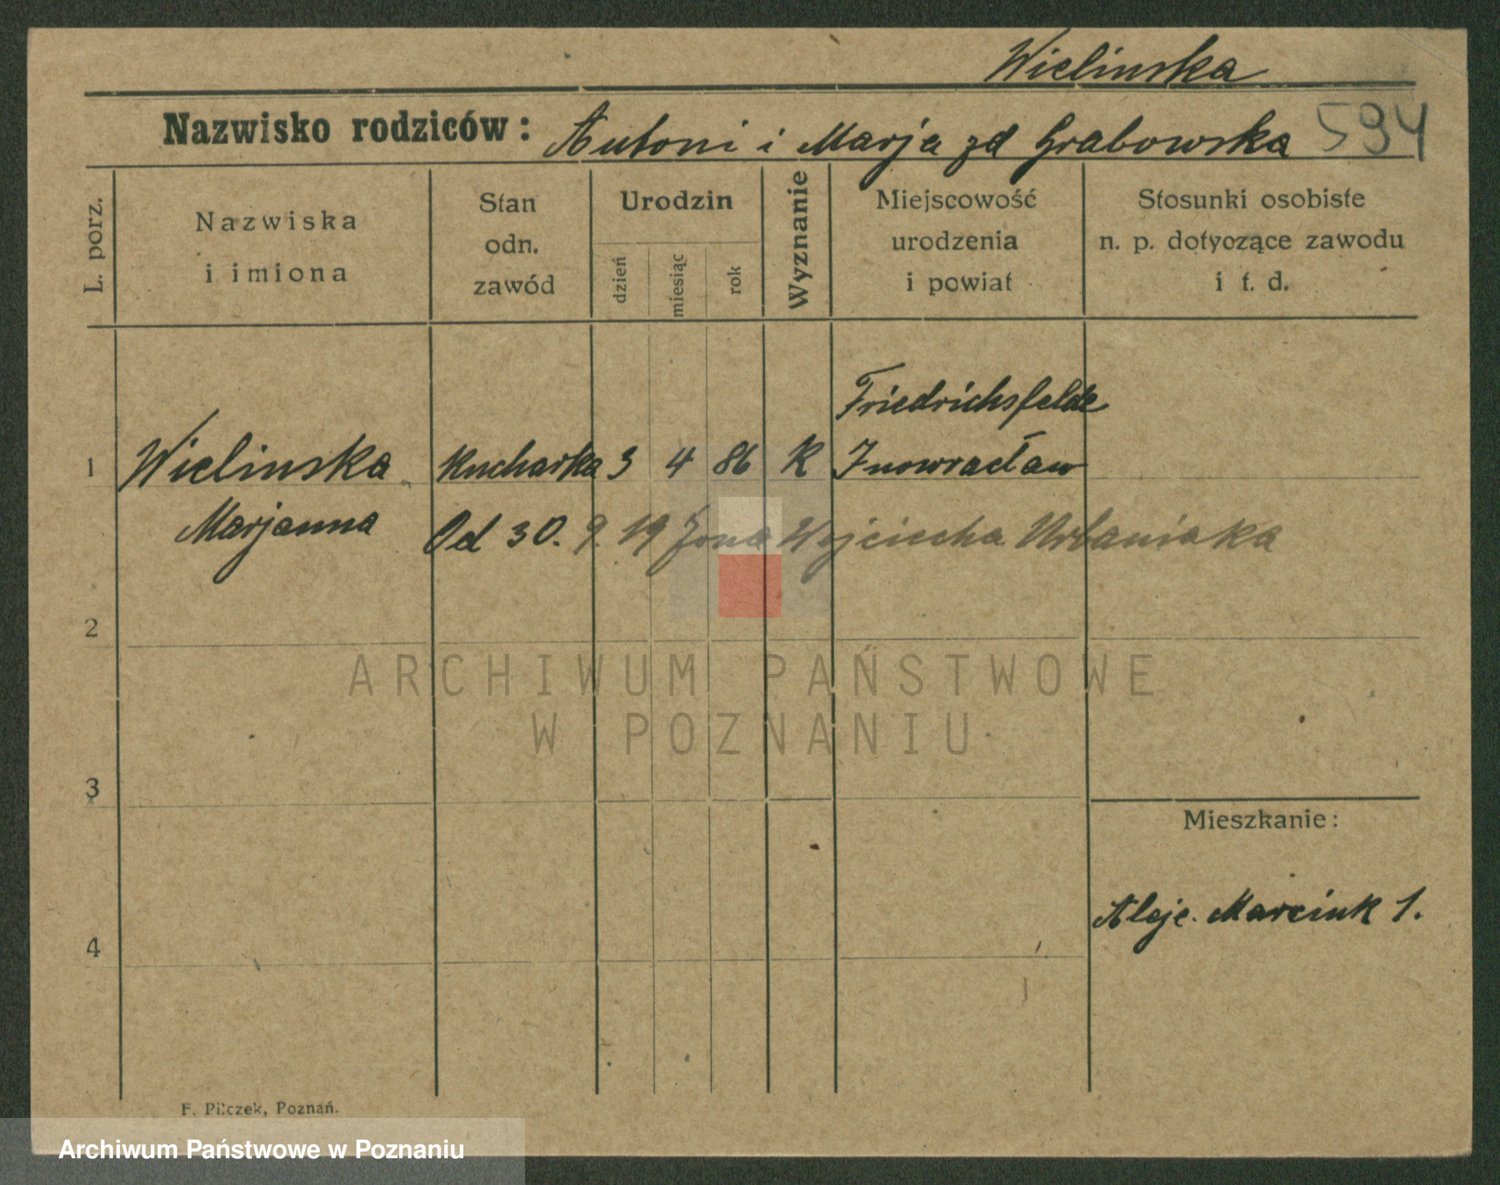 Wielinska
Nazwisko rodziców: Antoni i Marja zd Grabowska 594
L. porz.
Nazwiska
i imiona
Stan
odn.
zawód
Urodzin
dzień
miesiąc
rok
Wyznanie
Miejscowość
urodzenia
i powiat
Stosunki osobiste
n. p. dotyczące zawodu
i t. d.
Friedrichsfelde
1 Wielinska Kucharka 3 4 86 K Inowracław
Marjanna Od 30. 9. 19 żona Wojciecha Urbaniaka
2
ARCHIWUM PAŃSTWOWE
W POZNANIU
3
Mieszkanie:
Aleje. Marcink 1.
4
F. Pilczek, Poznań.
Archiwum Państwowe w Poznaniu